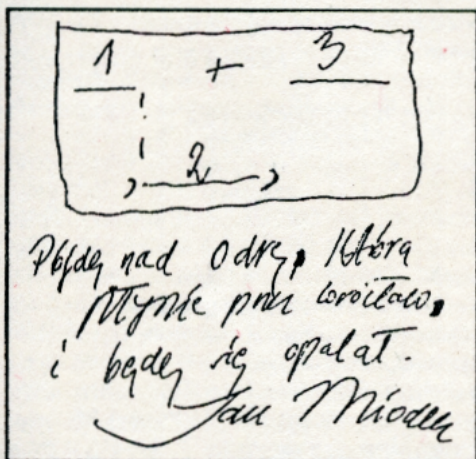 1 + 3
, 2 ,
Pójdę nad Odrę, która
płynie przez Wrocław,
i będę się opalał.
Jan Miodek